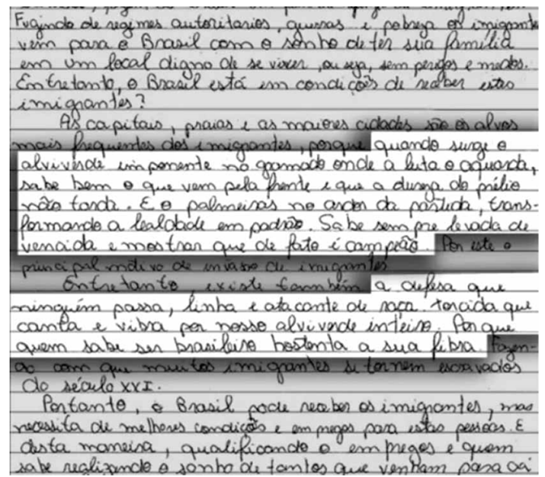 Fugindo de regimes autoritarios, guerras e pobreza os imigrantes
vem para o Brasil com o sonho de ter sua família
em um local digno de se viver, ou seja, sem perigos e medos.
Entretanto, o Brasil está em condições de receber estes
imigrantes?
As capitais, praias e as maiores cidades são os alvos
mais frequentes dos imigrantes, porque quando surge o
alviverde imponente no gramado onde a luta o aguarda,
sabe bem o que vem pela frente e que a dureza do prélio
não tarda. E o palmeiras no ardor da partida, trans-
formando a lealdade em padrão. Sabe sempre levada de
vencida e mostrar que de fato é campeão. Por este o
principal motivo de invasão de imigrantes.
Entretanto, existe também a defesa que
ninguém passa, linha e atacante de raça. torcida que
canta e vibra por nosso alviverde inteiro. Por que
quem sabe ser brasileiro hostenta a sua fibra. Fazen-
do com que muitos imigrantes se tornem escravados
do século XXI.
Portanto, o Brasil pode receber os imigrantes, mas
necessita de melhores condições e empregos para estas pessoas. E
desta maneira, qualificando o empregos e quem
sabe realizando o sonho de tantos que venham para cá